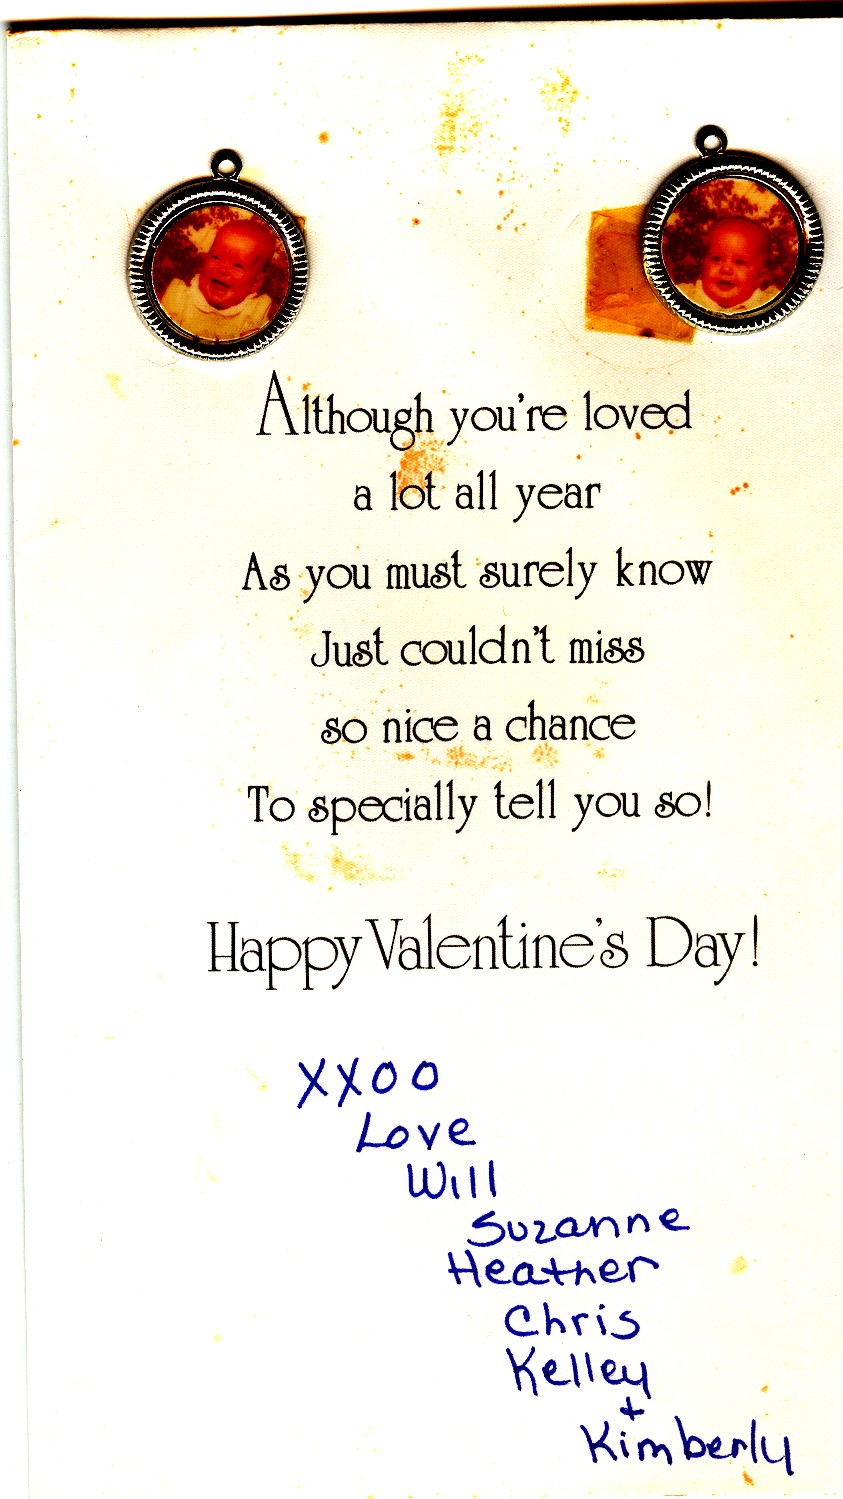 Although you're loved
a lot all year
As you must surely know
Just couldn't miss
so nice a chance
To specially tell you so!
Happy Valentine's Day!
XXOO
Love
Will
Suzanne
Heather
Chris
Kelley
+
Kimberly